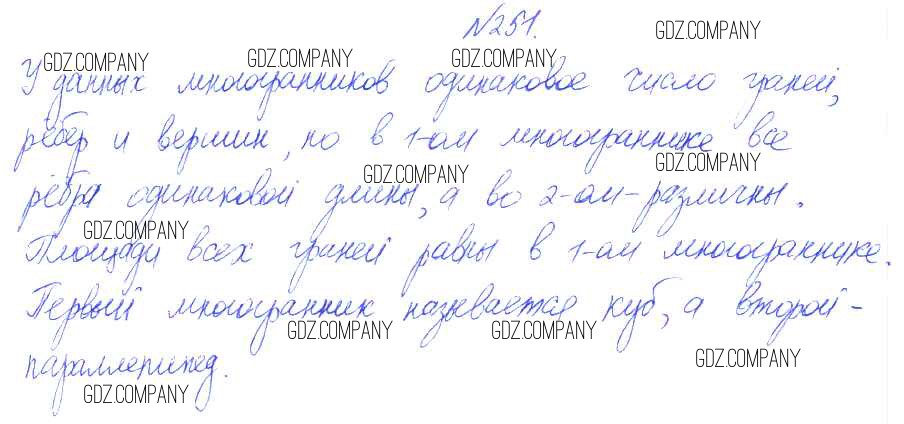 №251.
У данных многогранников одинаковое число граней,
рёбер и вершин, но в 1-ом многограннике все
рёбра одинаковой длины, а во 2-ом - различны.
Площади всех граней равны в 1-ом многограннике.
Первый многогранник называется куб, а второй -
параллепипед.
GDZ.COMPANY
GDZ.COMPANY
GDZ.COMPANY
GDZ.COMPANY
GDZ.COMPANY
GDZ.COMPANY
GDZ.COMPANY
GDZ.COMPANY
GDZ.COMPANY
GDZ.COMPANY
GDZ.COMPANY